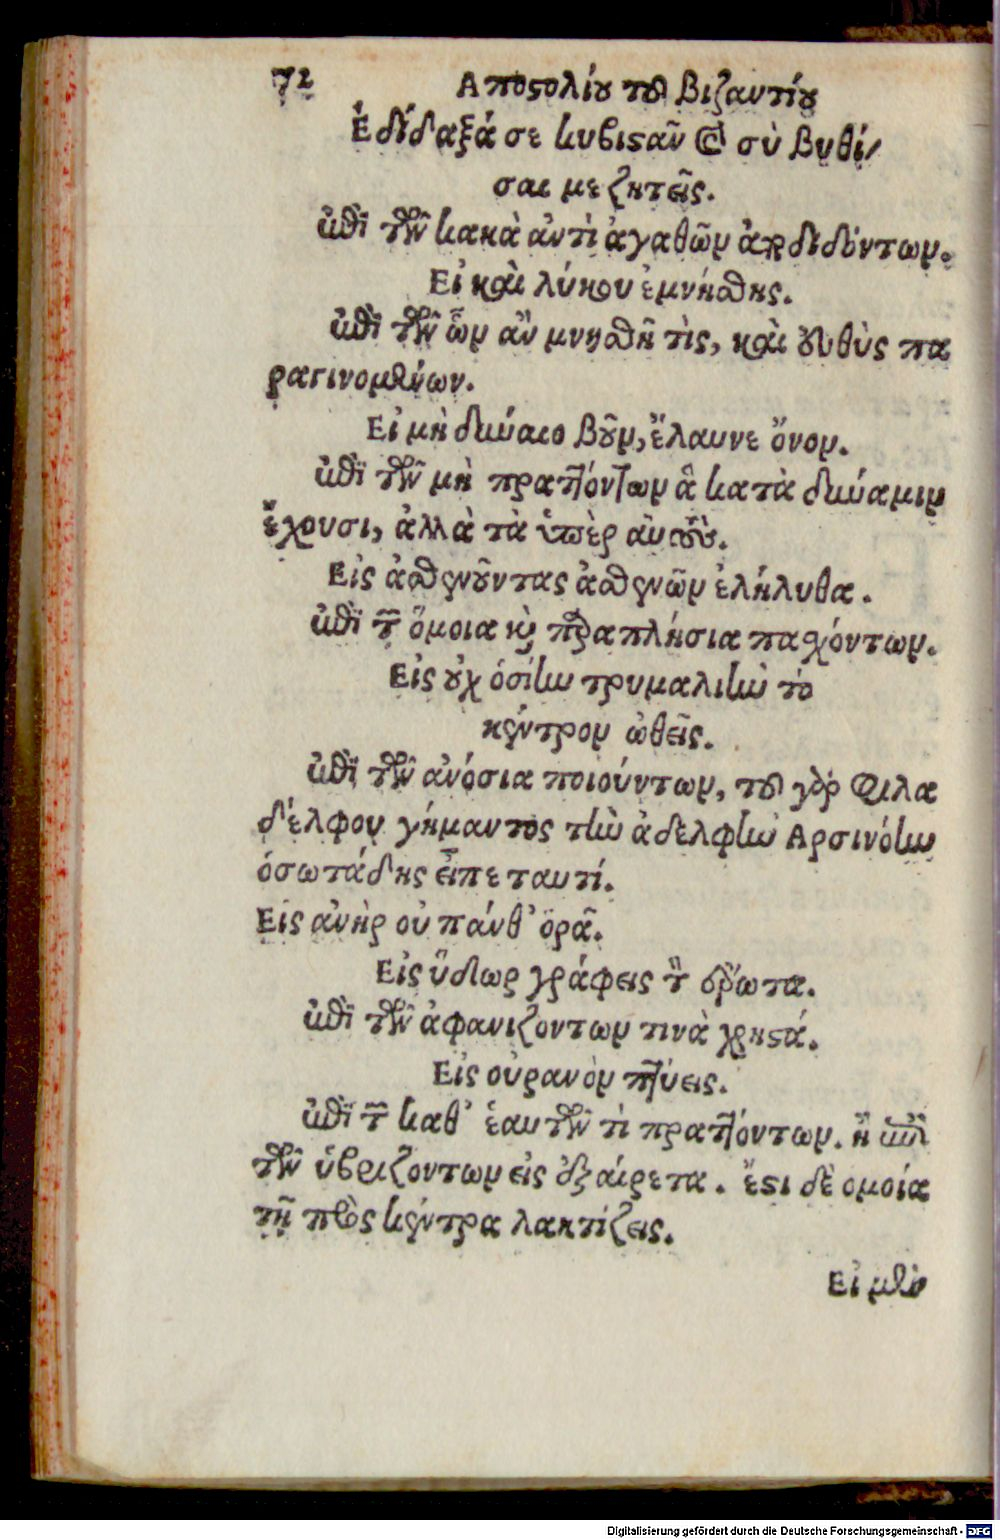 72 Αποστολίου τοῦ βιζαντίου
Ἐδίδαξά σε κυβιστᾶν καὶ σὺ βυθί-
σαι με ζητεῖς.
ἐπὶ τῶν κακὰ ἀντὶ ἀγαθῶν ἀποδιδόντων.
Εἰ καὶ λύκου ἐμνήσθης.
ἐπὶ τῶν ὧν ἂν μνησθῆ τὶς, καὶ εὐθὺς πα
ραγινομένων.
Εἰ μὴ δύναιο βοῦν, ἔλαυνε ὄνον.
ἐπὶ τῶν μὴ πραττόντων ἃ κατὰ δύναμιν
ἔχουσι, ἀλλὰ τὰ ὑπὲρ αὐτοὺς.
Εἰς ἀσθενοῦντας ἀσθενῶν ἐλήλυθα.
ἐπὶ τῶν ὅμοια καὶ παραπλήσια πασχόντων.
Εἰς οὐχ ὁσίην τρυμαλιὴν τὸ
κέντρον ὠθεῖς.
ἐπὶ τῶν ἀνόσια ποιούντων, τοῦ γὰρ Φιλα
δέλφου γήμαντος τὴν ἀδελφὴν Αρσινόην
ὁσωτάδης εἶπε ταυτί.
Εἷς ἀνὴρ οὐ πάνθ' ὁρᾶ.
Εἰς ὕδωρ γράφεις τὸν ἔρωτα.
ἐπὶ τῶν ἀφανιζοντων τινὰ χρηστά.
Εἰς οὐρανὸν πτύεις.
ἐπὶ τῶν καθ' ἑαυτῶν τὶ πραττόντων. ἢ ἐπὶ
τῶν ὑβριζοντων εἰς ἐξαίρετα. ἔστι δὲ ομοία
τῇ πρὸς κέντρα λακτίζεις.
Εἰ μὲν
Digitalisierung gefördert durch die Deutsche Forschungsgemeinschaft - DFG